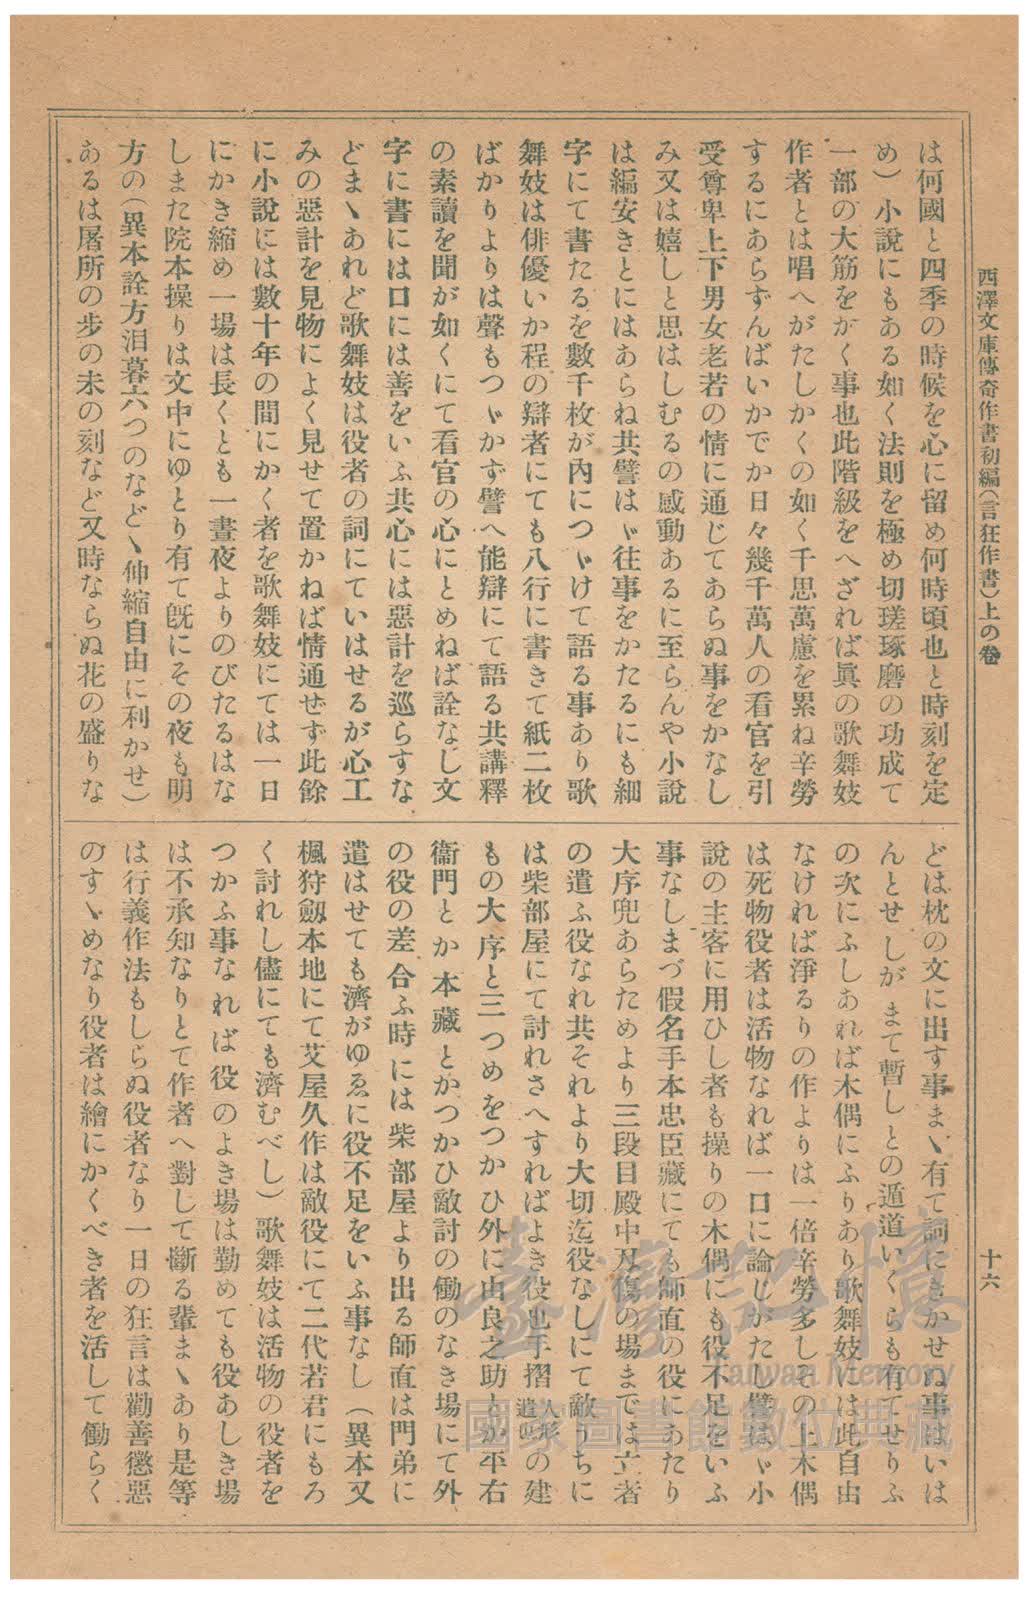 西澤文庫傳奇作書初編(言狂作書)上の卷
十六
は何國と四季の時候を心に留め何時頃也と時刻を定
め)小說にもある如く法則を極め切瑳琢磨の功成て
一部の大筋をかく事也此階級をへざれば眞の歌舞妓
作者とは唱へがたしかくの如く千思萬慮を累ね辛勞
するにあらずんばいかでか日々幾千萬人の看官を引
受尊卑上下男女老若の情に通じてあらぬ事をかなし
み又は嬉しと思はしむるの感動あるに至らんや小說
は編安きとにはあらね共譬はゞ往事をかたるにも細
字にて書たるを數千枚が內につゞけて語る事あり歌
舞妓は俳優いか程の辯者にても八行に書きて紙二枚
ばかりよりは聲もつゞかず譬へ能辯にて語る共講釋
の素讀を聞が如くにて看官の心にとめねば詮なし文
字に書には口には善をいふ共心には惡計を巡らすな
どまゝあれど歌舞妓は役者の詞にていはせるが心工
みの惡計を見物によく見せて置かねば情通せず此餘
に小說には數十年の間にかく者を歌舞妓にては一日
にかき縮め一場は長くとも一晝夜よりのびたるはな
しまた院本操りは文中にゆとり有て旣にその夜も明
方の(異本詮方泪暮六つのなど)伸縮自由に利かせ)
あるは屠所の步の未の刻など又時ならぬ花の盛りな
どは枕の文に出す事まゝ有て詞にきかせぬ事はいは
んとせしがまて暫しとの遁道いくらも有てせりふ
の次にふしあれば木偶にふりあり歌舞妓には此自由
なければ淨るりの作よりは一倍辛勞多しその上木偶
は死物役者は活物なれば一口に論じがたし譬はゞ小
說の主客に用ひし者も操りの木偶にも役不足をいふ
事なしまづ假名手本忠臣藏にても師直の役にあたり
大序兜あらためより三段目殿中刄傷の場までは立者
の遣ふ役なれ共それより大切迄役なしにて敵うちに
は柴部屋にて討れさへすればよき役也手摺人形遣の建
もの大序と三つめをつかひ外に由良之助とか平右
衞門とか本藏とかつかひ敵討の働のなき場にて外
の役の差合ふ時には柴部屋より出る師直は門弟に
遣はせても濟がゆゑに役不足をいふ事なし(異本又
楓狩劔本地にて艾屋久作は敵役にて二代若君にもろ
く討れし儘にても濟むべし)歌舞妓は活物の役者を
つかふ事なれば役のよき場は勤めても役あしき場
は不承知なりとて作者へ對して斷る輩まゝあり是等
は行義作法もしらぬ役者なり一日の狂言は勸善懲惡
のすゝめなり役者は繪にかくべき者を活して働らく
臺灣記憶
Taiwan Memory
國家圖書館數位典藏